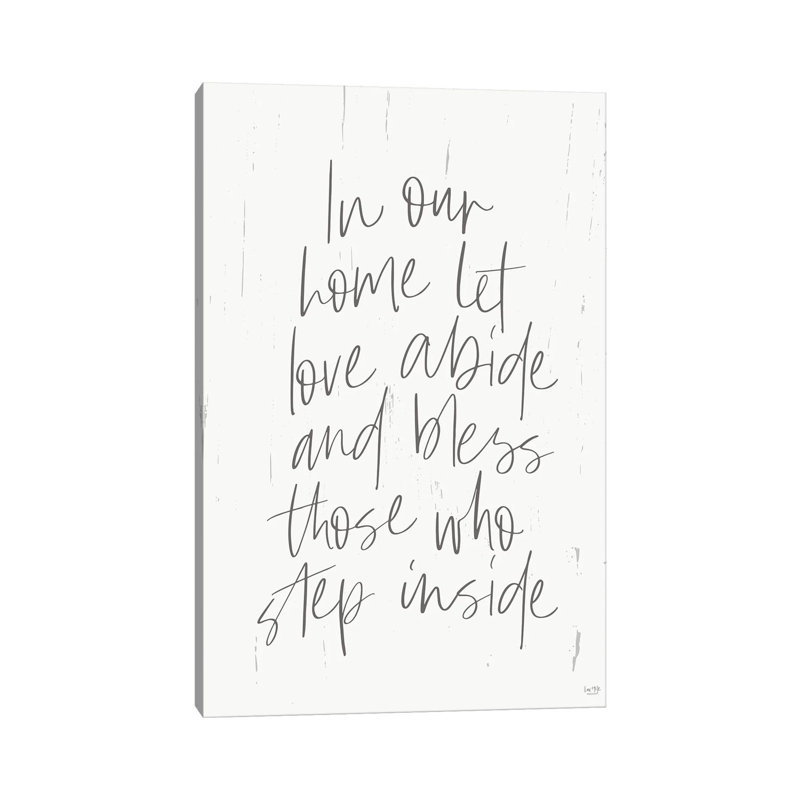 In our
home let
love abide
and bless
those who
step inside